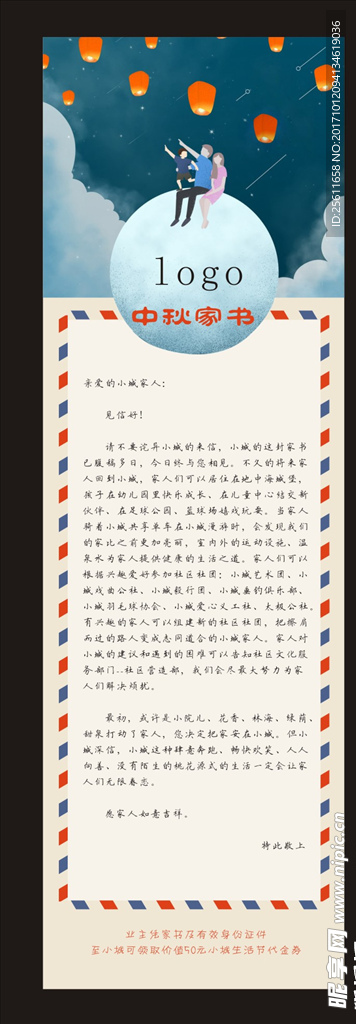 logo
中秋家书
亲爱的小城家人：
见信好！
请不要诧异小城的来信，小城的这封家书
已腹稿多日，今日终与您相见。不久的将来家
人回到小城，家人们可以居住在地中海城堡，
孩子在幼儿园里快乐成长、在儿童中心结交新
伙伴、在足球公园、篮球场嬉戏玩耍。当家人
骑着小城共享单车在小城漫游时，会发现我们
的家比之前更加亮丽，室内外的运动设施、温
泉水为家人提供健康的生活之道。家人们可以
根据兴趣爱好参加社区社团：小城艺术团、小
城戏曲公社、小城毅行团、小城垂钓俱乐部、
小城羽毛球协会、小城爱心义工社、太极公社。
有兴趣的家人可以组建新的社区社团，把擦肩
而过的路人变成志同道合的小城家人。家人对
小城的建议和遇到的困难可以告知社区文化服
务部门--社区营造部，我们会尽最大努力为家
人们解决烦扰。
最初，或许是小院儿、花香、林海、绿荫、
甜泉打动了家人，您决定把家安在小城。但小
城深信，小城这种肆意奔跑、畅快欢笑、人人
向善、没有陌生的桃花源式的生活一定会让家
人们无限眷恋。
愿家人如意吉祥。
特此敬上
业主凭家书及有效身份证件
至小城可领取价值50元小城生活节代金券
ID:25611658 NO:20171012094134619036
昵享网 www.nipic.cn